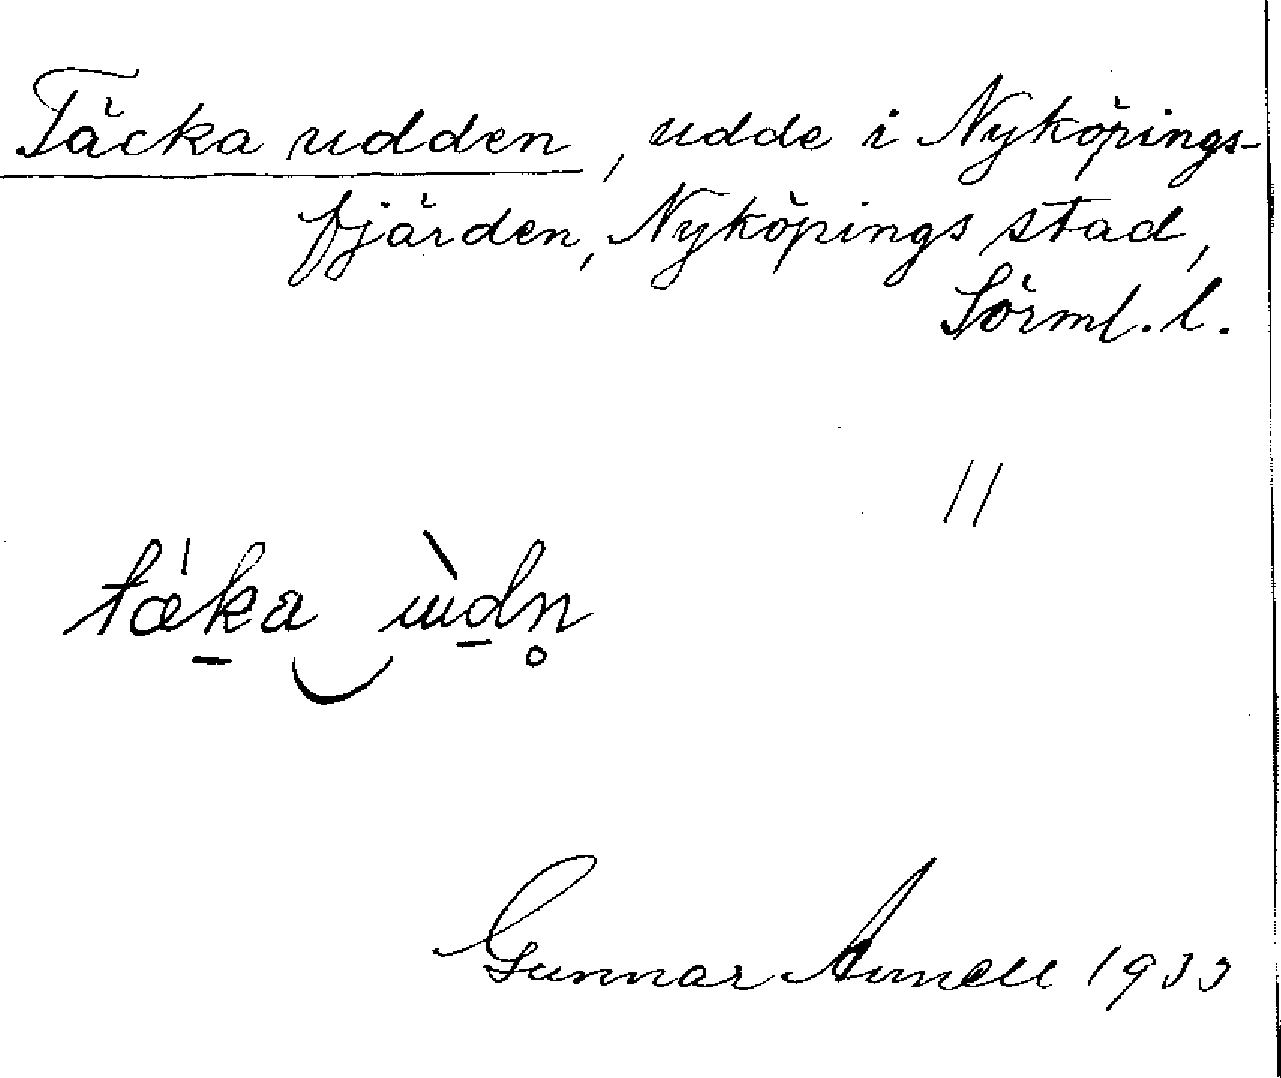 Täcka udden, udde i Nyköpings-
fjärden, Nyköpings stad,
Sörml. l.
//
tǽka ùdn̥
Gunnar Arnell 1933